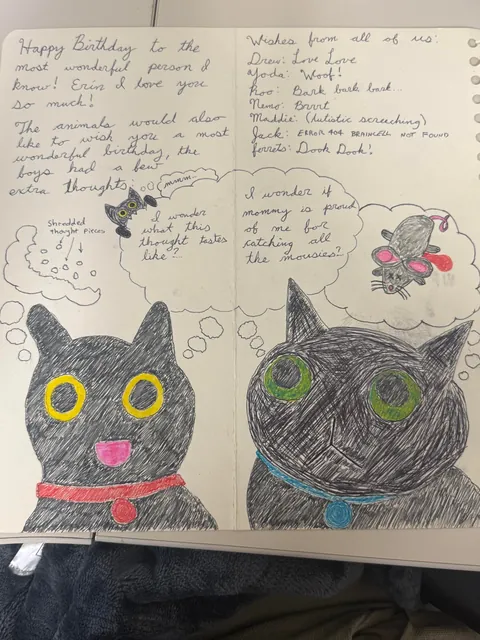 Happy Birthday to the
most wonderful person I
know! Erin I love you
so much!
The animals would also
like to wish you a most
wonderful birthday, the
boys had a few
extra thoughts:
Wishes from all of us:
Drew: Love Love
Yoda: "Woof!
Roo: Bark bark bark...
Nemo: Brrrt
Maddie: (Autistic screeching)
Jack: ERROR 404 BRAINCELL NOT FOUND
ferrets: Dook Dook!
mmm...
Shredded
thought pieces
I wonder
what this
thought tastes
like?
I wonder if
mommy is proud
of me for
catching all
the mousies?